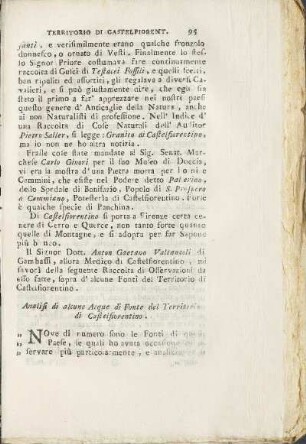 TERRITORIO DI CASTELFIORENT. 95
fanti, e verisimilmente erano qualche fronzolo
donnesco, o ornato di Vesti. Finalmente lo stesso
Signor Priore costumava fare continuamente
raccolta di Gusci di Testacei Fossili, e quelli scelti,
ben ripuliti ed assortiti, gli regalava a diversi Cavalieri,
e si può giustamente dire, che egli sia
stato il primo a far apprezzare nei nostri paesi
questo genere d' Anticaglie della Natura, anche
ai non Naturalisti di professione. Nell' Indice d'
una Raccolta di Cose Naturali dell' Auditor
Pietro Salier, si legge: Granito di Castelfiorentino,
ma io non ne ho intera notizia.
Fralle cose state mandate al Sig. Senat. Marchese
Carlo Ginori per il suo Museo di Doccia,
vi era la mostra d' una Pietra morta per
Cammini, che esiste nel Podere detto
dello Spedale di Bonifazio, Popolo di S. Prospero
a Cammiano, Potesteria di Castelfiorentino. Forse
è qualche specie di Panchina.
Di Castelfiorentino si porta a Firenze certa cenere
di Cerro e Querce, non tanto forte quanto
quelle di Montagne, e si adopra per far Sapone
più bianco.
Il Signor Dott. Anton Gaetano Valtancoli di
Gambassi, allora Medico di Castelfiorentino, mi
favorì della seguente Raccolta di Osservazioni da
esso fatte, sopra d' alcune Fonti del Territorio di
Castelfiorentino.
Analisi di alcune Acque di Fonte del Territorio
di Castelfiorentino.
„ Nove di numero sono le Fonti di questo
„ Paese, se quali ho avuta occasione
„ servare più particolarmente, e